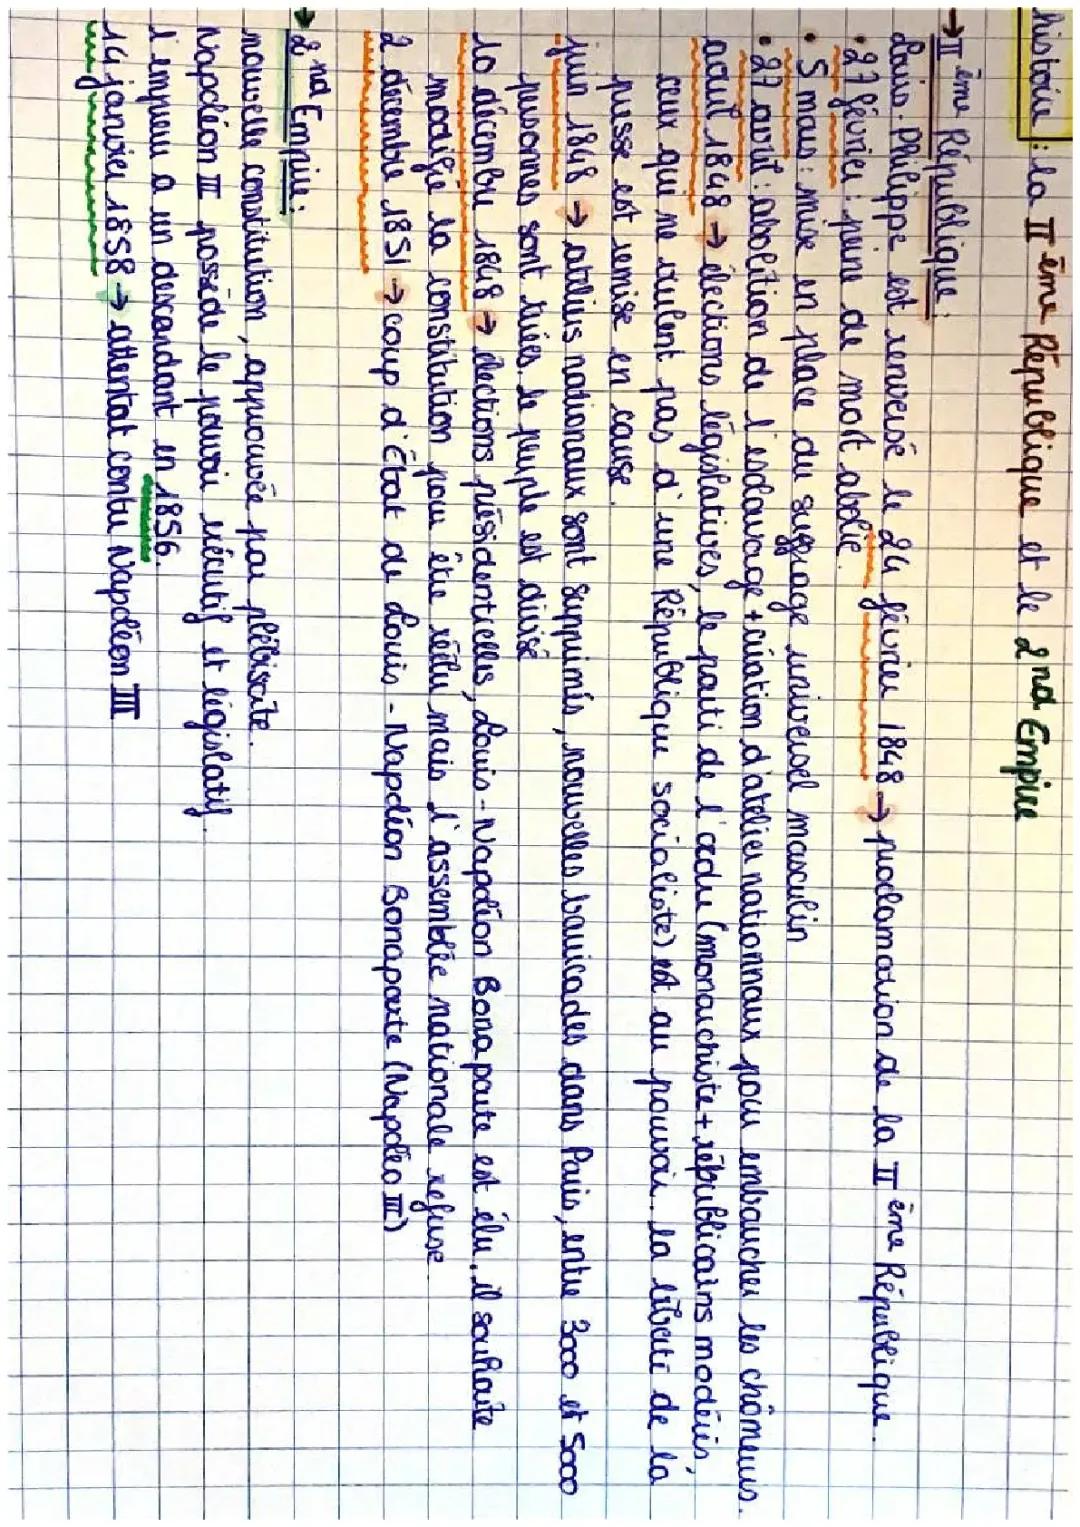 histoire : la II ème République et le 2nd Empire
→ II ème République :
Louis-Philippe est renversé le 24 février 1848 → proclamation de la II ème République.
• 27 février : peine de mort abolie.
• 5 mars : mise en place du suffrage universel masculin
• 27 avril : abolition de l'esclavage + création d'atelier nationnaux pour embaucher les chômeurs.
avril 1848 → élections législatives, le parti de l'ordre (monarchiste + républicains modérés,
ceux qui ne veulent pas d'une République socialiste) est au pouvoir. la liberté de la
presse est remise en cause.
juin 1848 → ateliers nationaux sont supprimés, nouvelles barricades dans Paris, entre 3000 et 5000
personnes sont tuées. le peuple est divisé
10 décembre 1848 → élections présidentielles, Louis-Napoléon Bonaparte est élu. il souhaite
modifié la constitution pour être réélu mais l'assemblée nationale refuse
2 décembre 1851 → coup d'État de Louis-Napoléon Bonaparte (Napoléo III)
→ 2 nd Empire :
nouvelle constitution, approuvée par plébiscite.
Napoléon III possède le pouvoir exécutif et législatif.
l'empereur a un descandant en 1856.
14 janvier 1858 → attentat contre Napoléon III